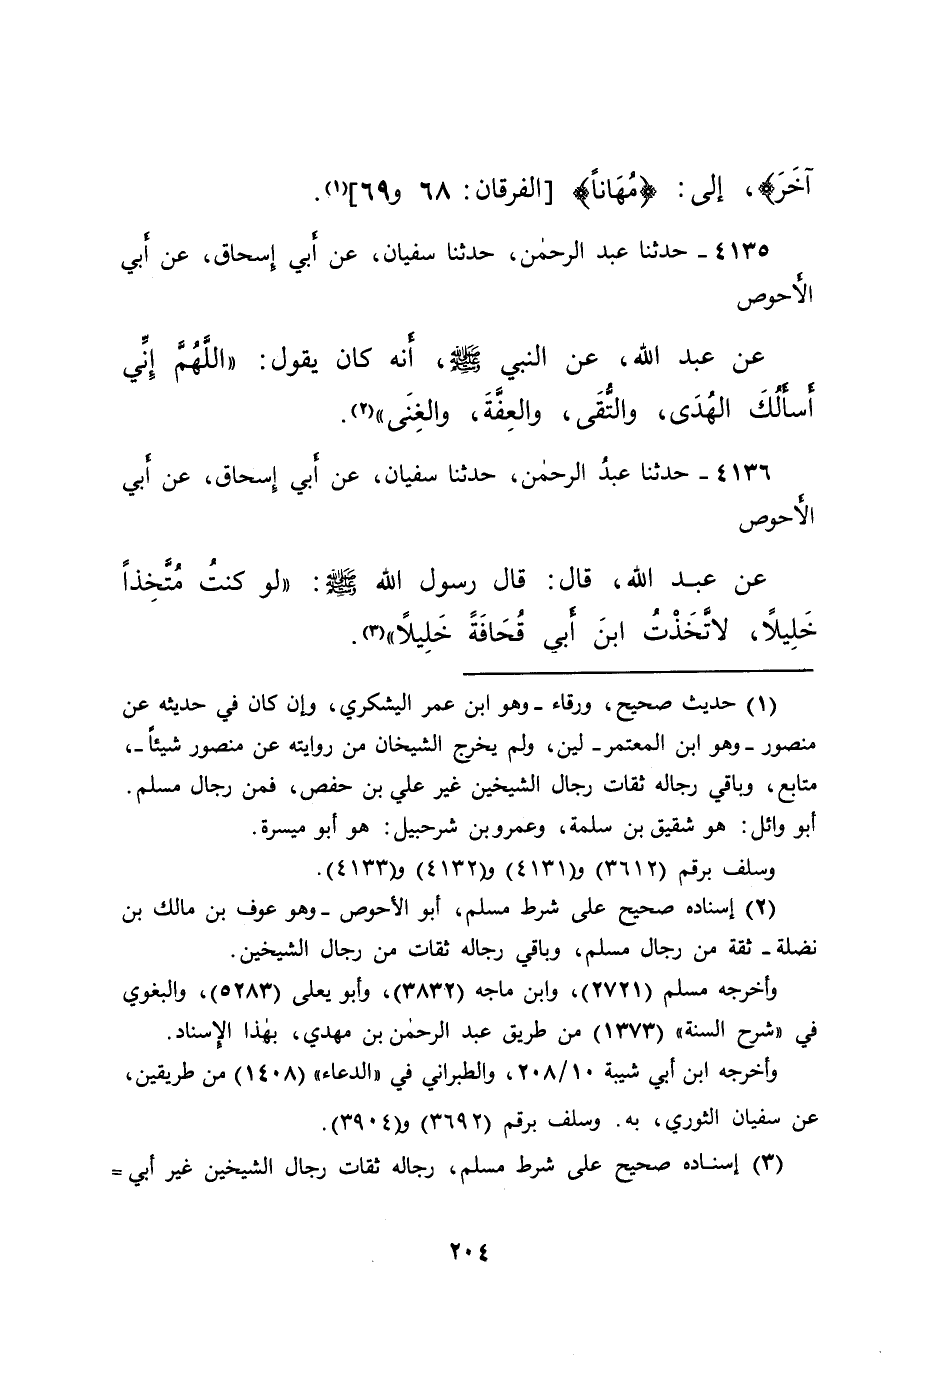 آخَرَ﴾، إلى: ﴿مُهَاناً﴾ [الفرقان: ٦٨ و٦٩](١).
٤١٣٥ ـ حدثنا عبد الرحمٰن، حدثنا سفيان، عن أبي إسحاق، عن أبي
الأحوص
عن عبد الله، عن النبي ﷺ، أنه كان يقول: «اللَّهُمَّ إنِّي
أَسأَلُكَ الهُدَى، والتُّقَى، والعِفَّةَ، والغِنَى»(٢).
٤١٣٦ ـ حدثنا عبدُ الرحمٰن، حدثنا سفيان، عن أبي إسحاق، عن أبي
الأحوص
عن عبد الله، قال: قال رسول الله ﷺ: «لو كنتُ مُتَّخِذاً
خَلِيلًا، لاتَّخَذْتُ ابنَ أَبي قُحَافَةَ خَلِيلًا»(٣).
(١) حديث صحيح، ورقاء ـ وهو ابن عمر اليشكري، وإن كان في حديثه عن
منصور ـ وهو ابن المعتمر ـ لين، ولم يخرج الشيخان من روايته عن منصور شيئاً ـ،
متابع، وباقي رجاله ثقات رجال الشيخين غير علي بن حفص، فمن رجال مسلم.
أبو وائل: هو شقيق بن سلمة، وعمرو بن شرحبيل: هو أبو ميسرة.
وسلف برقم (٣٦١٢) و(٤١٣١) و(٤١٣٢) و(٤١٣٣).
(٢) إسناده صحيح على شرط مسلم، أبو الأحوص ـ وهو عوف بن مالك بن
نضلة ـ ثقة من رجال مسلم، وباقي رجاله ثقات من رجال الشيخين.
وأخرجه مسلم (٢٧٢١)، وابن ماجه (٣٨٣٢)، وأبو يعلى (٥٢٨٣)، والبغوي
في «شرح السنة» (١٣٧٣) من طريق عبد الرحمٰن بن مهدي، بهٰذا الإسناد.
وأخرجه ابن أبي شيبة ٢٠٨/١٠، والطبراني في «الدعاء» (١٤٠٨) من طريقين،
عن سفيان الثوري، به. وسلف برقم (٣٦٩٢) و(٣٩٠٤).
(٣) إسناده صحيح على شرط مسلم، رجاله ثقات رجال الشيخين غير أبي =
٢٠٤